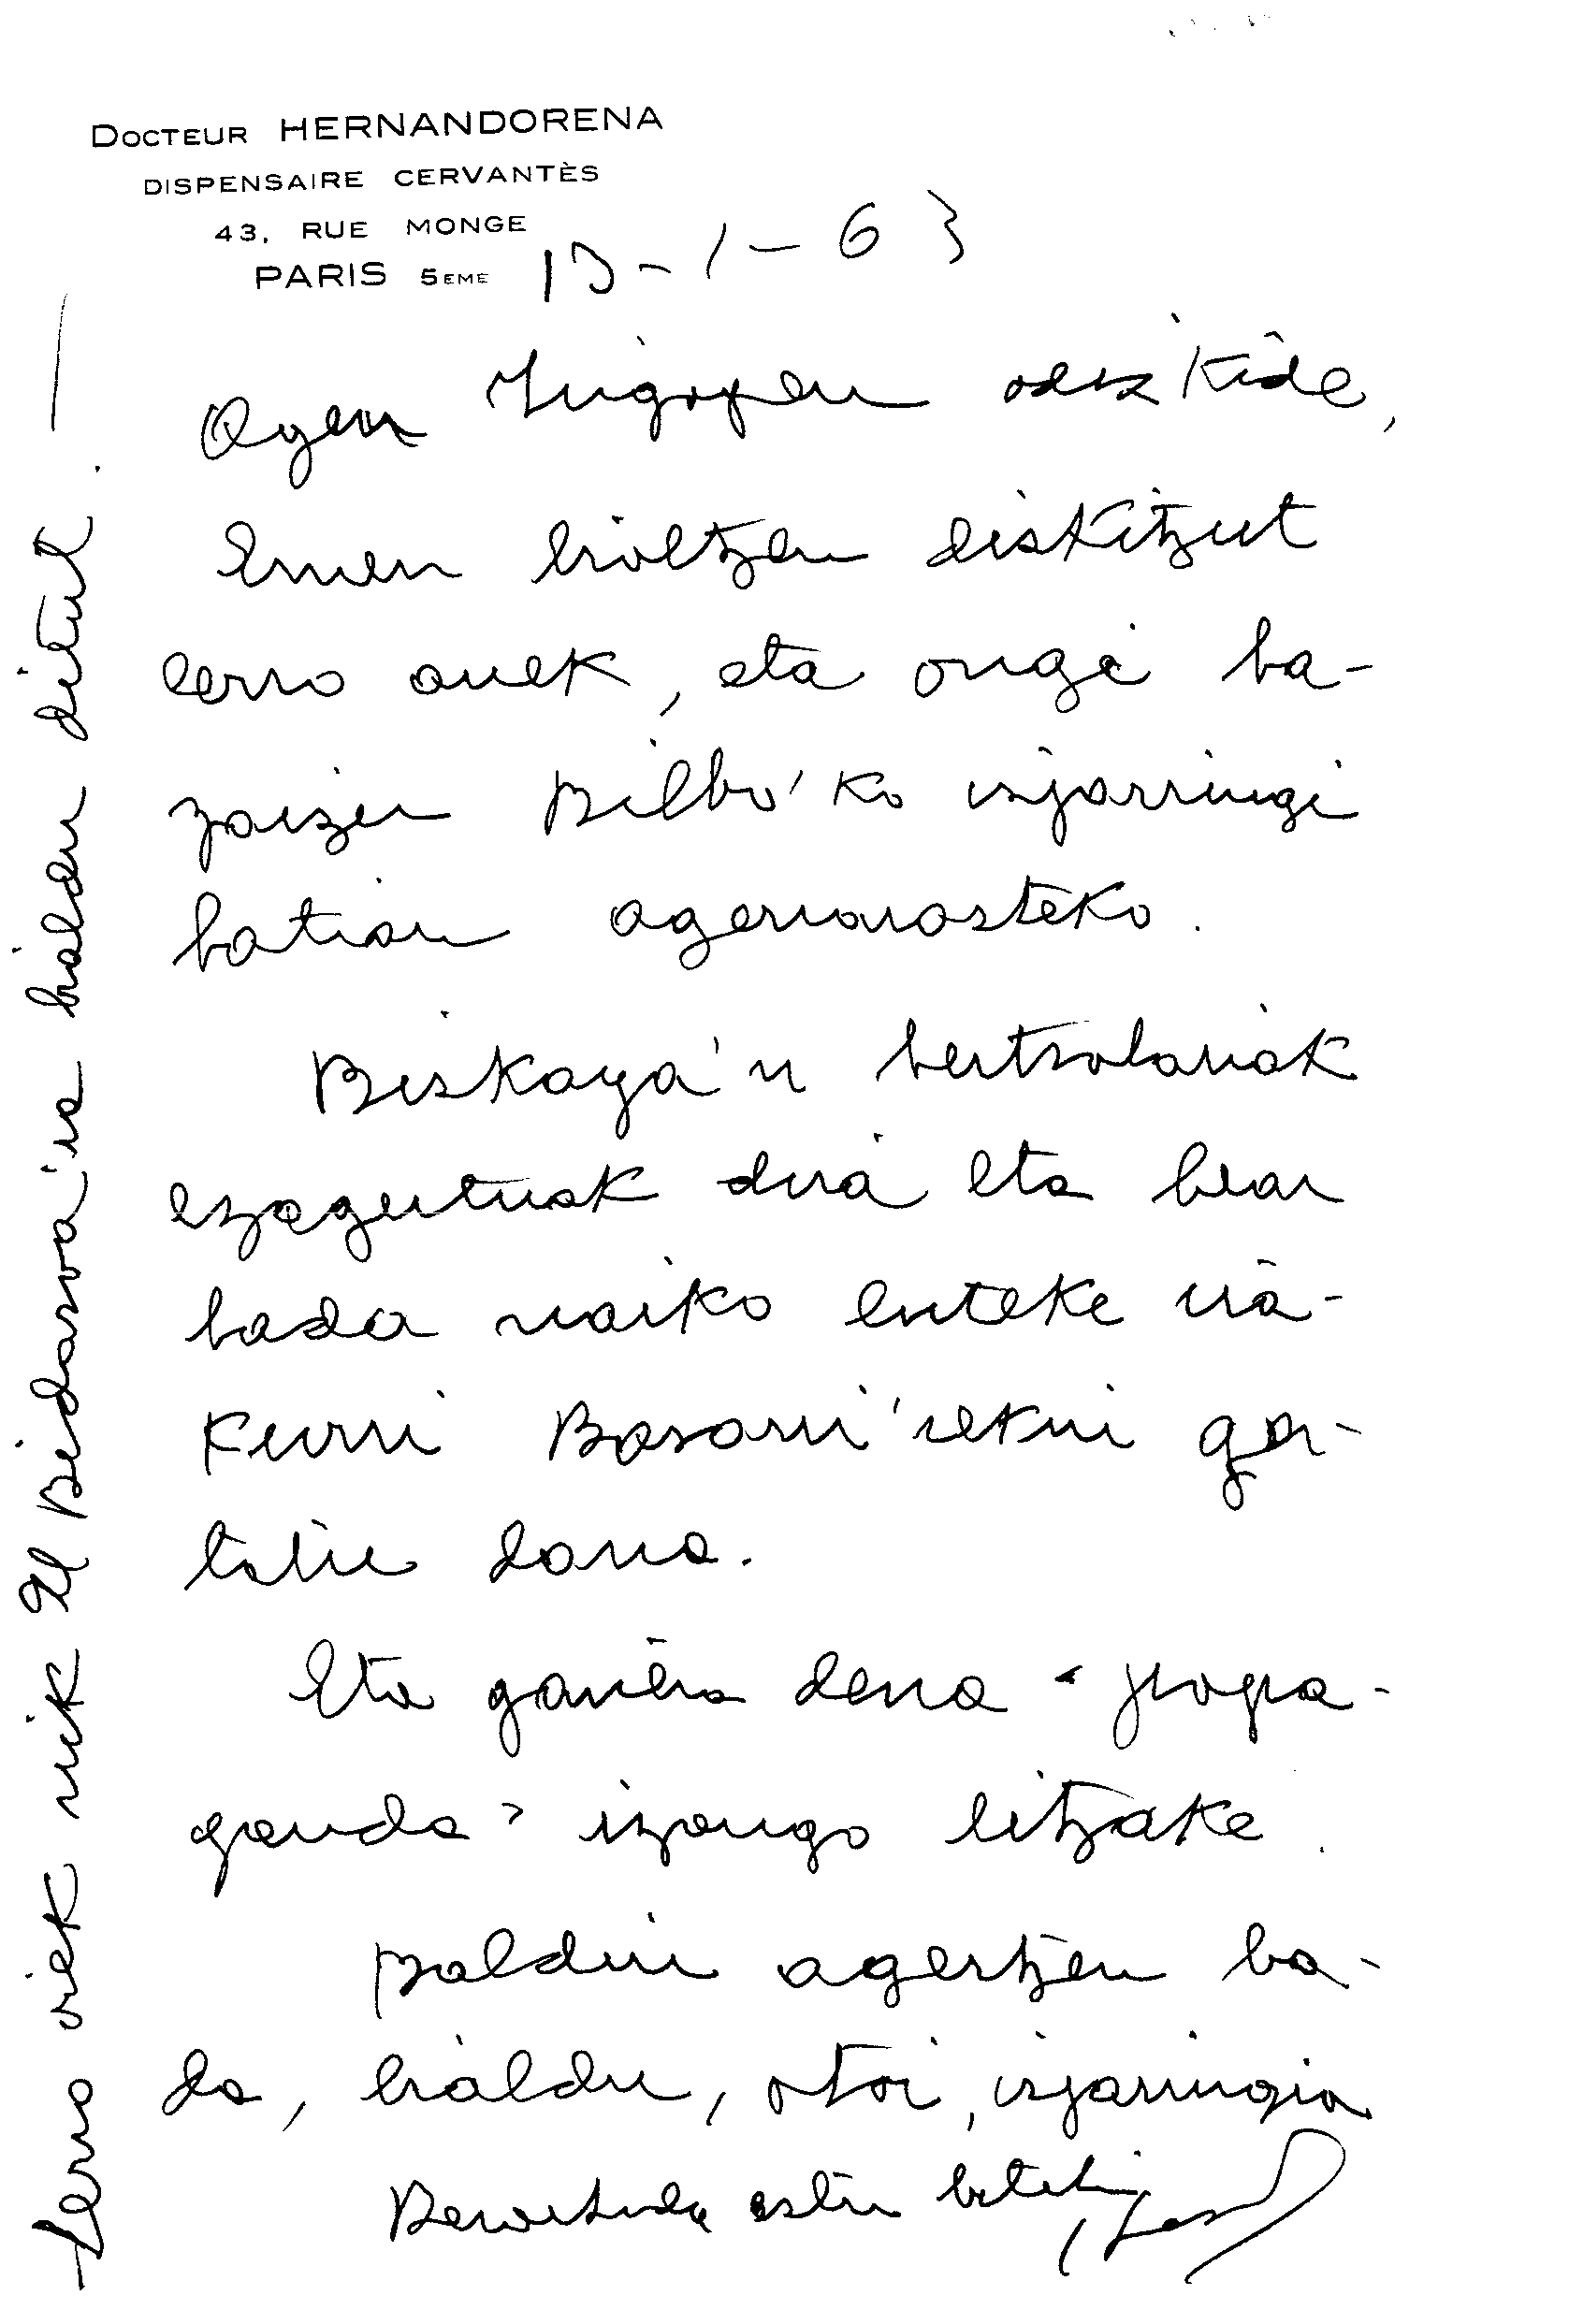 DOCTEUR HERNANDORENA
DISPENSAIRE CERVANTÈS
43, RUE MONGE
PARIS 5EME
13-1-63
adiskide,
Emen bialtzen dizkitzut
lerro auek, eta ongi ba-
zaizu Bilbo'ko izparringi
batian agerrarazteko.
Bizkaya'n bertsolariak
ezagutuak dira eta bear
bada naiko luteke ira-
kurri Basarri'rekin ger-
tatu dana.
Eta gañera dena "propa-
ganda" izango litzake.
Baldin agertzen ba-
da, bialdu, otoi, izparringia
estu bat
Lerro oiek nik El Bidasoa'ra bialdu ditut. —